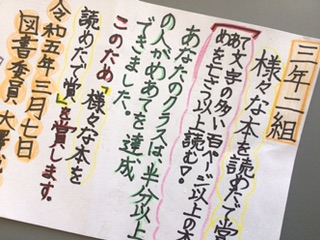 三年二組
様々な本を読めたで賞
めあて文字の多い百ページ以上の本
を二さつ以上読む！
あなたのクラスは、半分以上
の人がめあてを達成
できました。
このため「様々な本を
読めたで賞」を賞します。
令和五年三月七日
図書委員